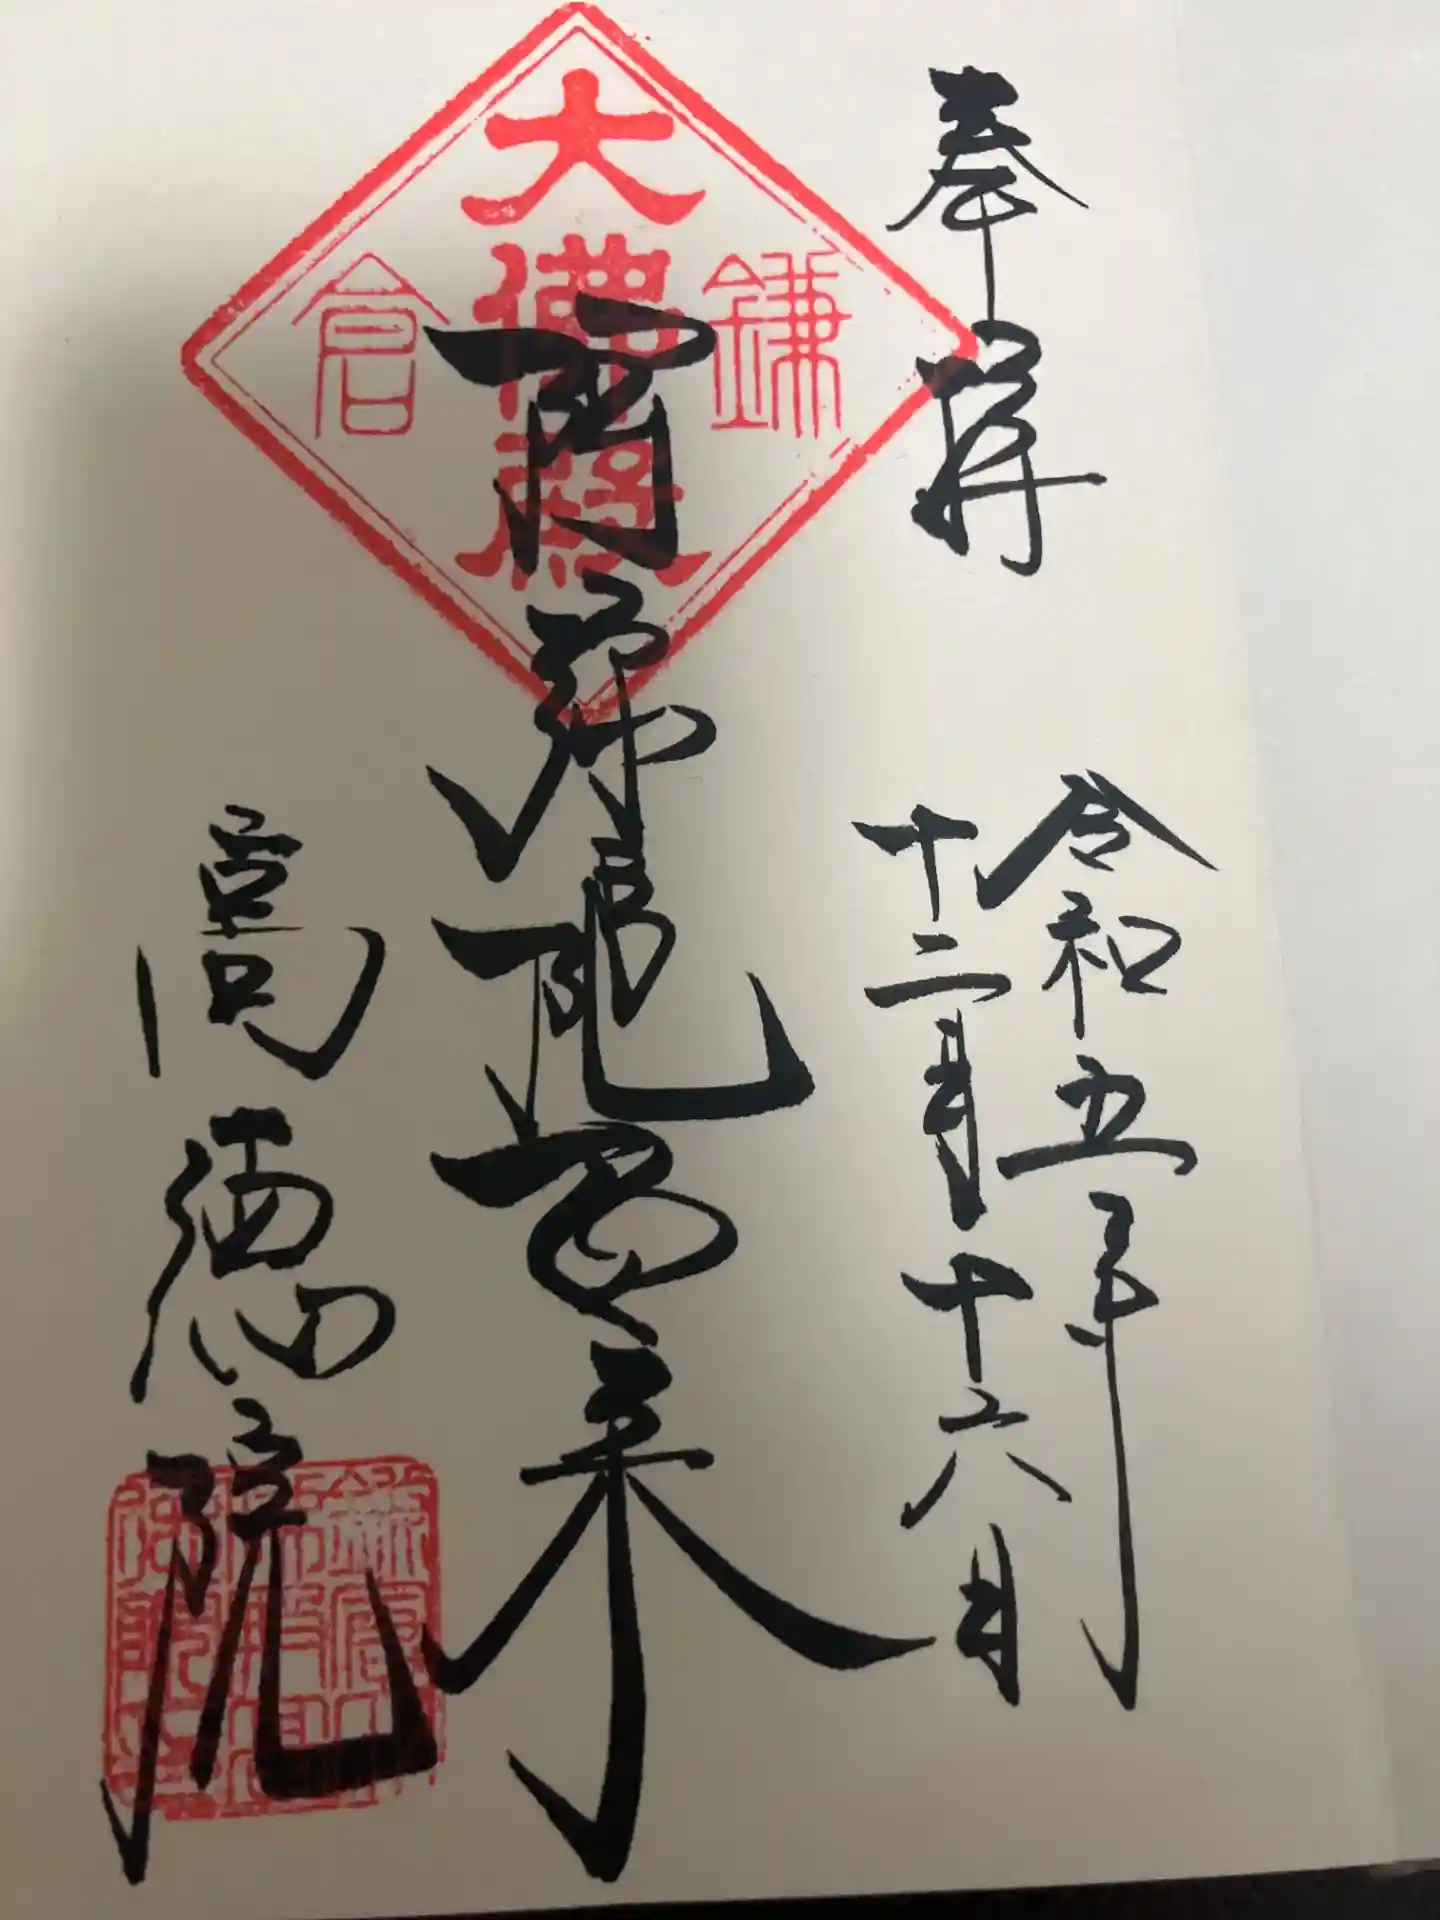 奉拝
令和五年
十二月十六日
鎌倉
大佛殿
阿弥陀如来
高徳院